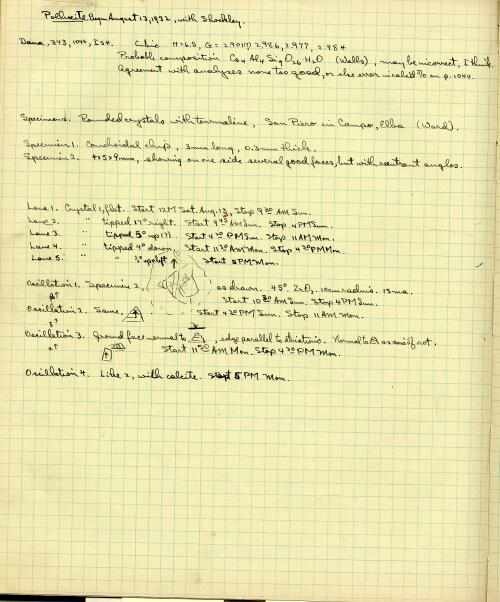 Pollucite. Begun August 13, 1932, with Shockley.
Dana, 343, 1044, I 54. Cubic H=6.5, G= 2.901(?) 2.986, 2.977, 2.984
Probable composition Cs4 Al4 Si9 O26·H2O (Wells), may be incorrect, I think.
Agreement with analyses none too good, or else error in calcd % on p. 1044.
Specimens. Rounded crystals with tourmaline, San Piero in Campo, Elba (Ward).
Specimen 1. Conchoidal chip, 3mm long, 0.3mm thick.
Specimen 2. 4x5x9mm, showing on one side several good faces, but with reentrant angles.
Laue 1. Crystal 1, flat. Start 12M Sat. Aug. 13, Stop 9 30 AM Sun.
Laue 2. " tipped 17° right. Start 9 45 AM Sun. Stop 4 PM Sun.
Laue 3. " tipped 5° up (?). Start 4 30 PM Sun. Stop 11 AM Mon.
Laue 4. " tipped 4° down. Start 11 30 AM Mon. Stop 4 30 PM Mon.
Laue 5. " 3° up left Start 5 PM Mon.
Oscillation 1. Specimen 2, as drawn. 45°. ZrO2. 10cm radius. 15 ma.
Start 10 30 AM Sun. Stop 4 PM Sun.
Oscillation 2. Same, Start 4 30 PM Sun. Stop 11 AM Mon.
Oscillation 3. Ground face normal to , edge parallel to striations. Normal to as axis of rot.
Start 11 30 AM Mon. Stop 4 30 PM Mon.
Oscillation 4. Like 2, with calcite. Start 5 PM Mon.